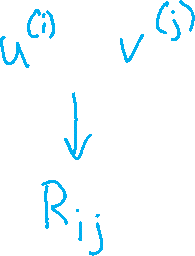 u(i) v(j)
Rij